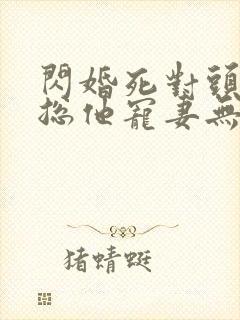 閃婚死對頭
總他寵妻無
猪蜻蜓